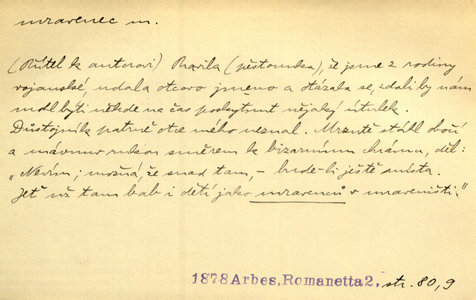 mravenec m.
(Přítel k autorovi) Pravila (pěstounka), že jsme z rodiny
vojanské, udala otcovo jméno a otázala se, zdali by nám
mohl býti někde na čas poskytnut nějaký útulek.
Důstojník patrně otce mého neznal. Mrzutě stáhl obočí
a mávnuv rukou směrem k bizarnímu chrámu, děl:
„Nevím; možná, že snad tam, – bude-li ještě místa.
Jeť už tam bab i dětí jako mravenců v mraveništi."
1878 Arbes, Romanetta 2, str. 80,9